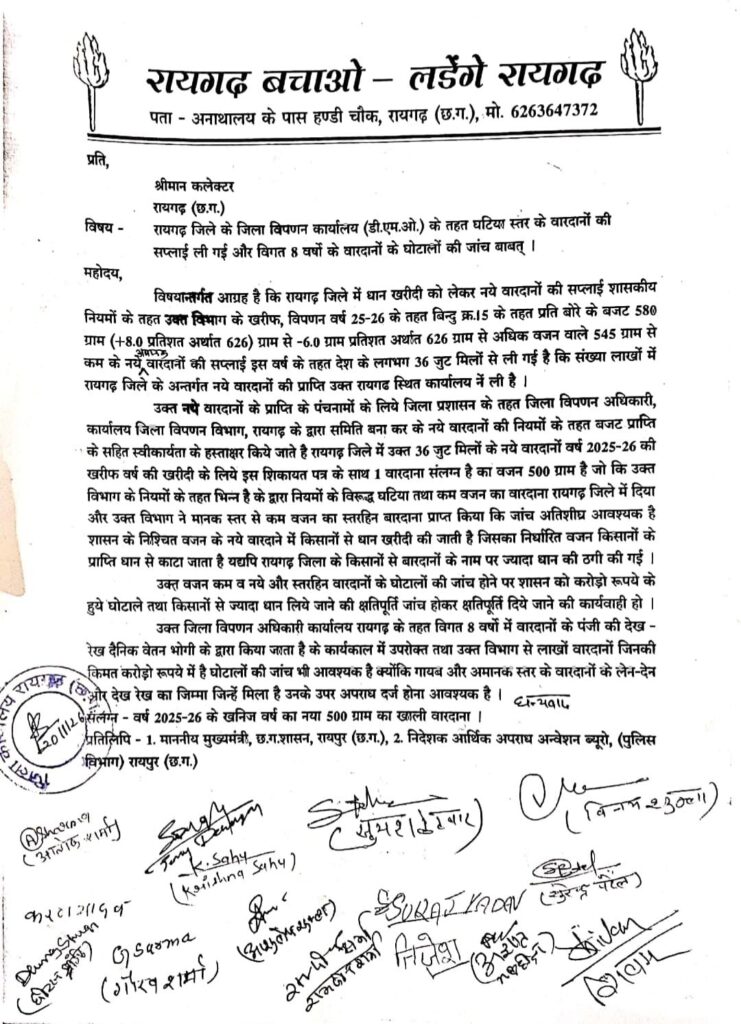 रायगढ़ बचाओ – लडेंगे रायगढ़
पता - अनाथालय के पास हण्डी चौक, रायगढ़ (छ.ग.), मो. 6263647372
प्रति,
श्रीमान कलेक्टर
रायगढ़ (छ.ग.)
विषय - रायगढ़ जिले के जिला विपणन कार्यालय (डी.एम.ओ.) के तहत घटिया स्तर के वारदानों की
सप्लाई ली गई और विगत 8 वर्षो के वारदानों के घोटालों की जांच बाबत् ।
महोदय,
विषयान्तर्गत आग्रह है कि रायगढ़ जिले में धान खरीदी को लेकर नये वारदानों की सप्लाई शासकीय
नियमों के तहत उक्त विभाग के खरीफ, विपणन वर्ष 25-26 के तहत बिन्दु क्र.15 के तहत प्रति बोरे के बजट 580
ग्राम (+8.0 प्रतिशत अर्थात 626) ग्राम से -6.0 ग्राम प्रतिशत अर्थात 626 ग्राम से अधिक वजन वाले 545 ग्राम से
कम के नये वारदानों की सप्लाई इस वर्ष के तहत देश के लगभग 36 जुट मिलों से ली गई है कि संख्या लाखों में
रायगढ़ जिले के अन्तर्गत नये वारदानों की प्राप्ति उक्त रायगढ स्थित कार्यालय नें ली है ।
उक्त नये वारदानों के प्राप्ति के पंचनामों के लिये जिला प्रशासन के तहत जिला विपणन अधिकारी,
कार्यालय जिला विपणन विभाग, रायगढ़ के द्वारा समिति बना कर के नये वारदानों की नियमों के तहत बजट प्राप्ति
के सहित स्वीकार्यता के हस्ताक्षर किये जाते है रायगढ़ जिले में उक्त 36 जुट मिलों के नये वारदानों वर्ष 2025-26 की
खरीफ वर्ष की खरीदी के लिये इस शिकायत पत्र के साथ 1 वारदाना संलग्न है का वजन 500 ग्राम है जो कि उक्त
विभाग के नियमों के तहत भिन्न है के द्वारा नियमों के विरूद्ध घटिया तथा कम वजन का वारदाना रायगढ़ जिले में दिया
और उक्त विभाग ने मानक स्तर से कम वजन का स्तरहिन बारदाना प्राप्त किया कि जांच अतिशीघ्र आवश्यक है
शासन के निश्चित वजन के नये वारदाने में किसानों से धान खरीदी की जाती है जिसका निर्धारित वजन किसानों के
प्राप्ति धान से काटा जाता है यद्यपि रायगढ़ जिला के किसानों से बारदानों के नाम पर ज्यादा धान की ठगी की गई ।
उक्त वजन कम व नये और स्तरहिन वारदानों के घोटालों की जांच होने पर शासन को करोड़ो रूपये के
हुये घोटाले तथा किसानों से ज्यादा धान लिये जाने की क्षतिपूर्ति जांच होकर क्षतिपूर्ति दिये जाने की कार्यवाही हो ।
उक्त जिला विपणन अधिकारी कार्यालय रायगढ़ के तहत विगत 8 वर्षो में वारदानों के पंजी की देख -
रेख दैनिक वेतन भोगी के द्वारा किया जाता है के कार्यकाल में उपरोक्त तथा उक्त विभाग से लाखों वारदानों जिनकी
किमत करोड़ो रूपये में है घोटालों की जांच भी आवश्यक है क्योंकि गायब और अमानक स्तर के वारदानों के लेन-देन
और देख रेख का जिम्मा जिन्हें मिला है उनके उपर अपराध दर्ज होना आवश्यक है ।
धन्यवाद
संलग्न - वर्ष 2025-26 के खनिज वर्ष का नया 500 ग्राम का खाली वारदाना ।
प्रतिलिपि - 1. माननीय मुख्यमंत्री, छ.ग.शासन, रायपुर (छ.ग.), 2. निदेशक आर्थिक अपराध अन्वेशन ब्यूरो, (पुलिस
विभाग) रायपुर (छ.ग.)
20/1/26
(आलोक शर्मा)
K. Sahu
(Krishna Sahu)
(विनय शुक्ला)
(सुरेन्द्र पटेल)
SURAJ YADAV
G Sarma
(गौरव शर्मा)